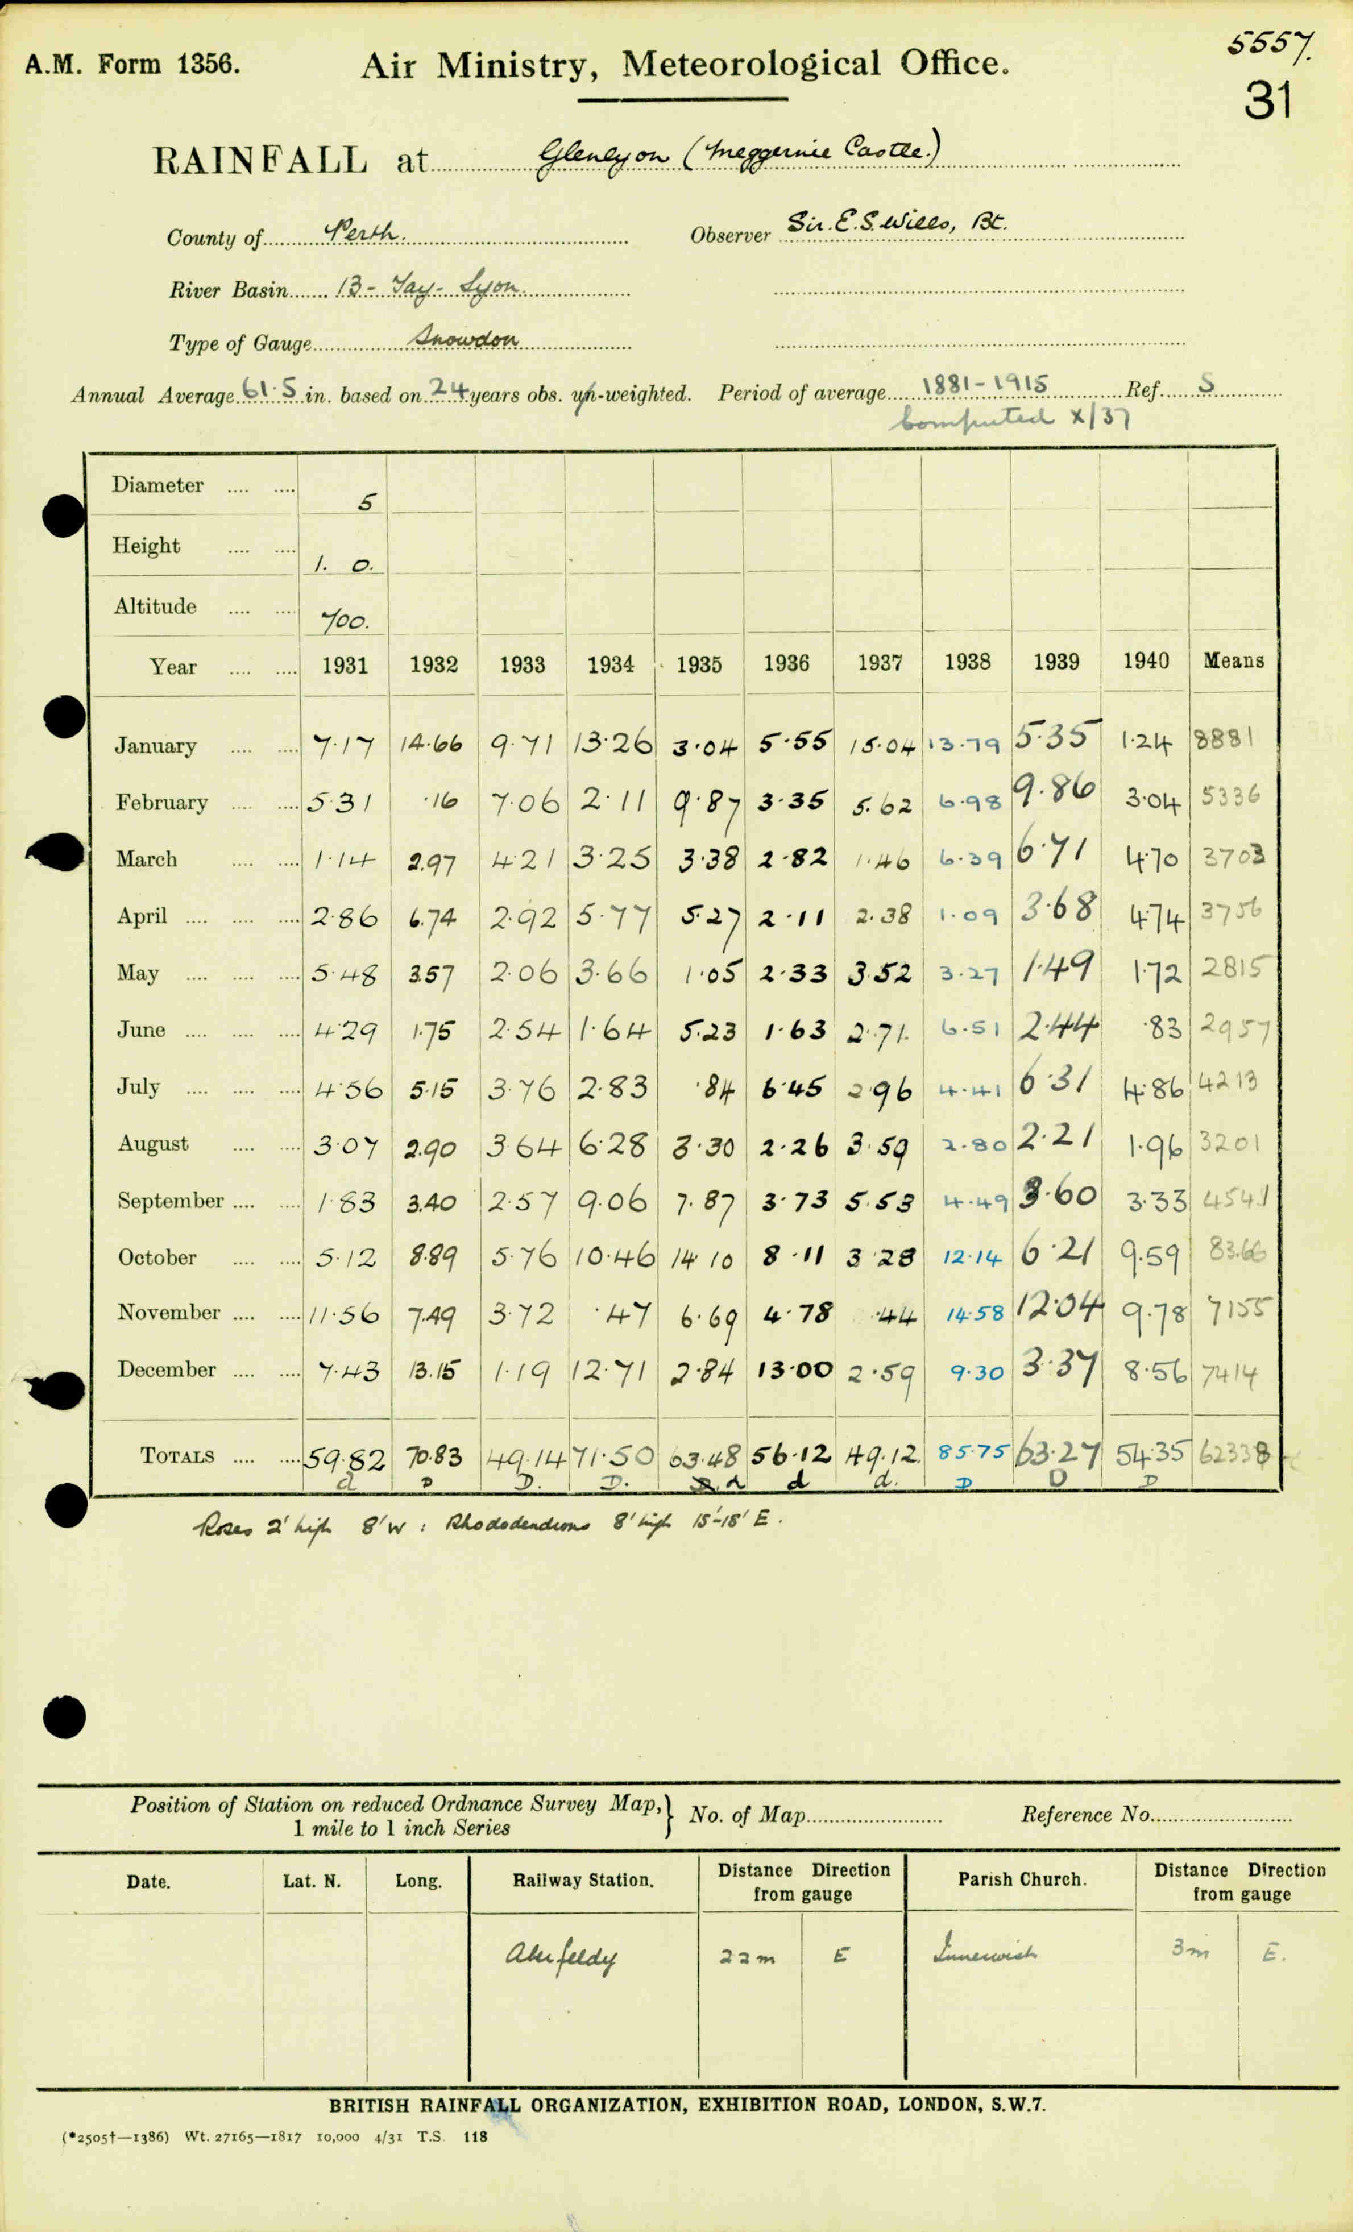 5557.
A.M. Form 1356. Air Ministry, Meteorological Office.
31
RAINFALL at Glenlyon (Meggernie Castle.)
County of Perth. Observer Sir. E.S. Wills, Bt.
River Basin 13 - Tay - Lyon.
Type of Gauge Snowdon
Annual Average 61.5 in. based on 24 years obs. un-weighted. Period of average 1881-1915 Ref. S
Computed X/37
Diameter .... .... 5
Height .... .... 1. 0.
Altitude .... .... 700.
Year .... .... 1931 1932 1933 1934 1935 1936 1937 1938 1939 1940 Means
January .... .... 7.17 14.66 9.71 13.26 3.04 5.55 15.04 13.79 5.35 1.24 8881
February .... .... 5.31 .16 7.06 2.11 9.87 3.35 5.62 6.98 9.86 3.04 5336
March .... .... 1.14 2.97 4.21 3.25 3.38 2.82 1.46 6.39 6.71 4.70 3703
April .... .... .... 2.86 6.74 2.92 5.77 5.27 2.11 2.38 1.09 3.68 4.74 3756
May .... .... .... 5.48 3.57 2.06 3.66 1.05 2.33 3.52 3.27 1.49 1.72 2815
June .... .... .... 4.29 1.75 2.54 1.64 5.23 1.63 2.71 6.51 2.44 .83 2957
July .... .... .... 4.56 5.15 3.76 2.83 .84 6.45 2.96 4.41 6.31 4.86 4213
August .... .... 3.07 2.90 3.64 6.28 3.30 2.26 3.59 2.80 2.21 1.96 3201
September .... .... 1.83 3.40 2.57 9.06 7.87 3.73 5.53 4.49 3.60 3.33 4541
October .... .... 5.12 8.89 5.76 10.46 14.10 8.11 3.28 12.14 6.21 9.59 83.66
November .... .... 11.56 7.49 3.72 .47 6.69 4.78 .44 14.58 12.04 9.78 7155
December .... .... 7.43 13.15 1.19 12.71 2.84 13.00 2.59 9.30 3.37 8.56 7414
TOTALS .... .... 59.82 70.83 49.14 71.50 63.48 56.12 49.12 85.75 63.27 54.35 62338
d D D. D. d d d. D D D
Roses 2' high 8' W : Rhododendrons 8' high 15'-18' E.
Position of Station on reduced Ordnance Survey Map, } No. of Map Reference No.
1 mile to 1 inch Series
Date. Lat. N. Long. Railway Station. Distance Direction from gauge Parish Church. Distance Direction from gauge
Aberfeldy 22m E Innerwick 3m E.
BRITISH RAINFALL ORGANIZATION, EXHIBITION ROAD, LONDON, S.W.7.
(*2505†—1386) Wt. 27165—1817 10,000 4/31 T.S. 118